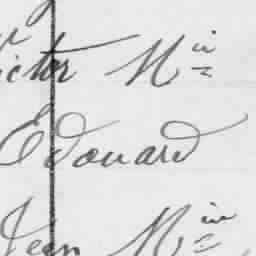 ictor M in
Edouard
Jean M in